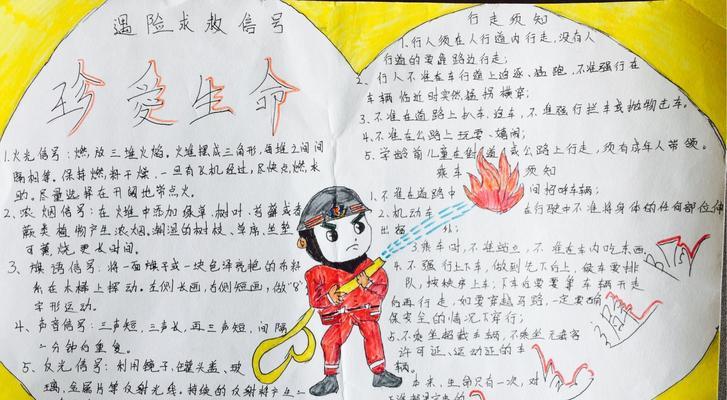 遇险求救信号
珍爱生命
1、火光信号：燃放三堆火焰，火堆摆成三角形，每堆之间间
隔相等。保持燃料干燥，一旦有飞机经过，尽快点燃求
助。尽量选择在开阔地带点火。
2、浓烟信号：在火堆中添加绿草、树叶、苔藓或者
蕨类植物产生浓烟。潮湿的树枝、草席、坐垫
可熏烧更长时间。
3、旗语信号：将一面旗子或一块色泽艳艳的布料
系在木棒上挥动。左侧长画，右侧短画，做"8"
字形运动。
4、声音信号：三声短，三声长，再三声短，间隔
一分钟后重复。
5、反光信号：利用镜子、罐头盖、玻
璃、金属片等反射光线。持续的反射将产生一
行走须知
1.行人须在人行道内行走，没有人
行道的要靠路边行走；
2.行人不准在车行道上追逐、猛跑，不准强行在
车辆临近时突然猛拐横穿；
3.不准在道路上扒车、追车，不准强行拦车或抛物击车。
4.不准在公路上玩耍、嬉闹；
5.学龄前儿童在街道或公路上行走，须有成年人带领。
乘车 须知
1.不准在道路中 间招呼车辆；
2.机动车 在行驶中不准将身体的任何部位伸
出 外；
3.乘车时，不准站立，不准在车内吃东西
4.不强行上下车，做到先下后上，候车要排
队，按秩序上车；下车后要等车辆开走
后再行走，如要穿越马路，一定要确
保安全的情况下穿行；
5.不乘坐超载车辆，不乘坐无载客
许可证、运动证的车
辆。
生命只有一次，对